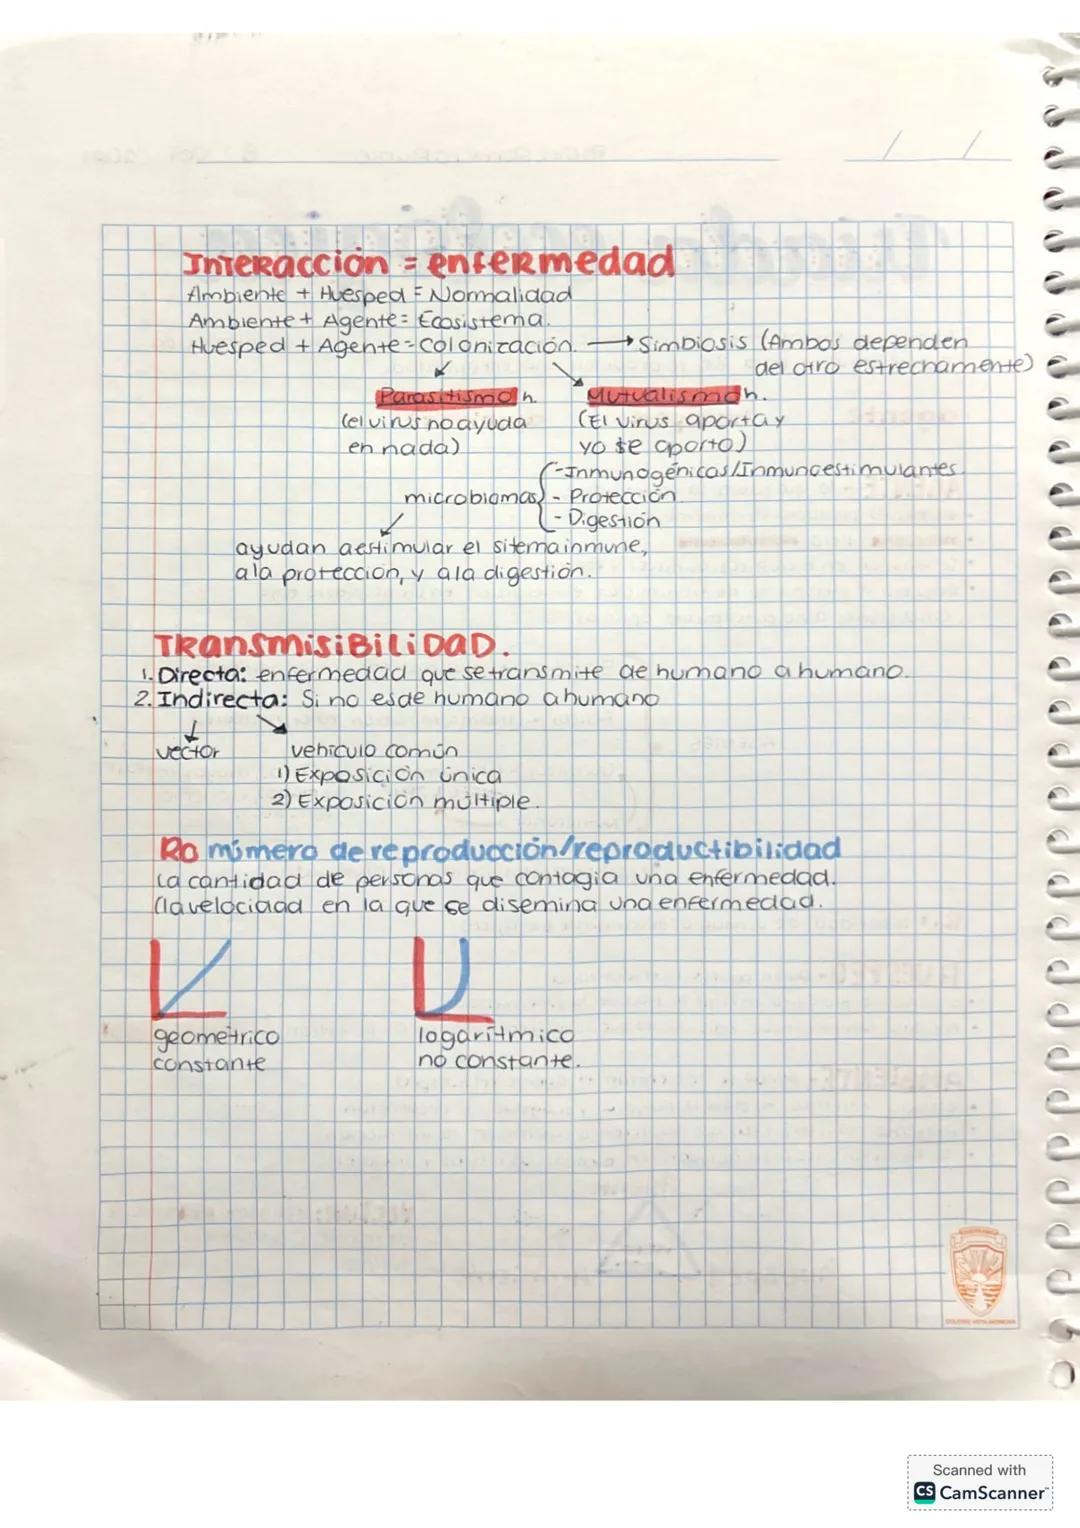 Interacción = enfermedad
Ambiente + Huesped = Normalidad
Ambiente + Agente = Ecosistema.
Huesped + Agente = colonización. → Simbiosis (Ambos dependen
del otro estrechamente)
Parasitismo h. Mutualismo h.
(el virus no ayuda (El virus aporta y
en nada) yo le aporto)
-Inmunogénicas/Inmunoestimulantes
microbiomas - Protección
- Digestión
ayudan a estimular el sitema inmune,
a la protección, y a la digestión.
TRANSMISIBILIDAD.
1. Directa: enfermedad que se transmite de humano a humano.
2. Indirecta: Si no es de humano a humano
vector vehiculo común
1) Exposición única
2) Exposición múltiple.
Ro número de reproducción/reproductibilidad
La cantidad de personas que contagia una enfermedad.
(la velocidad en la que se disemina una enfermedad.
geometrico logaritmico
constante no constante.
Scanned with
CS CamScanner